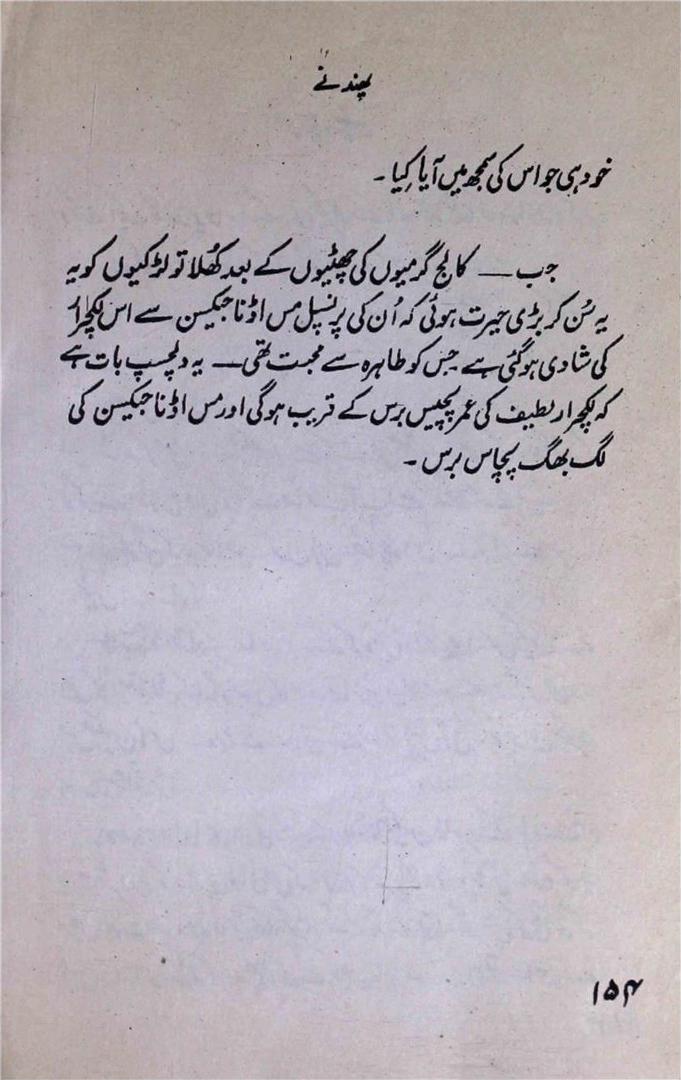 پھندنے
خود ہی جو اس کی سمجھ میں آیا کِیا۔
جب — کالج گرمیوں کی چھٹیوں کے بعد کھُلا تو لڑکیوں کو یہ
یہ سُن کر بڑی حیرت ہوئی کہ اُن کی پرنسپل مس اڈنا جیکسن سے اس لکچرار
کی شادی ہوگئی ہے جس کو طاہرہ سے محبت تھی — یہ دلچسپ بات ہے
کہ لکچرار لطیف کی عمر پچیس برس کے قریب ہوگی اور مس اڈنا جیکسن کی
لگ بھگ پچاس برس۔
۱۵۴